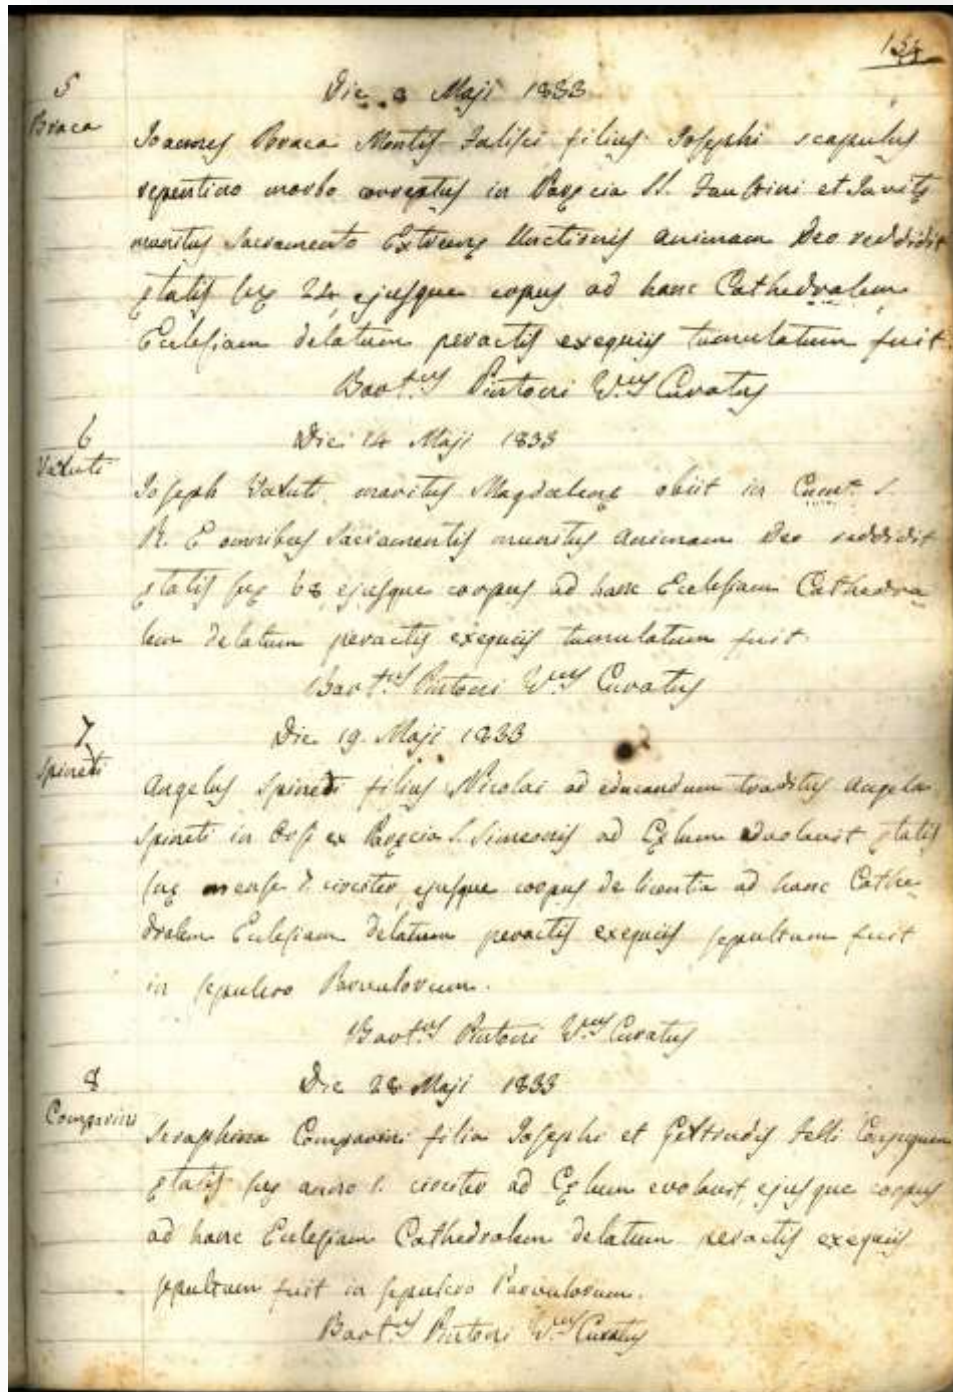 5
Die 3 Maji 1833
Braca
Joannes Braca Montis Falisci filius Josephi scapulus
repentino morbo correptus in Parecia SS. Faustini et Jovite
munitus Sacramento Extreme Unctionis animam Deo reddidit
etatis sue 24 ejusque copus ad hanc Cathedralem
Ecclesiam delatum peractis exequiis tumulatum fuit.
Bart.us Pintocci V.us Curatus
6
Die 14 Maji 1833
Joseph maritus Magdalene obiit in S.
R. E omnibus Sacramentis munitus animam Deo reddidit
etatis sue 68 ejusque corpus ad hanc Ecclesiam Cathedra
lem delatum peractis exequiis tumulatum fuit.
Bart.us Curatus
7
Die 19. Maji 1833
Spineti
Angelus Spineti filius Nicolai ad educandum traditus Angela
Spineti in ex Parecia S. Simeonis ad Celum evolavit etatis
sue mense circiter, ejusque corpus de licentia ad hanc Cathe
dralem Eclesiam delatum peractis exequiis sepultum fuit
in sepulcro Parvulorum.
Bart.us Curatus
8
Die 28 Maji 1833
Comparini
Seraphina Comparini filia Josephi et Geltrudis Felli Conjugum
etatis sue anno 1. circiter ad Celum evolavit, ejusque corpus
ad hanc Eclesiam Cathedralem delatum peractis exequiis
sepultum fuit in sepulcro Parvulorum.
Bart.us Curatus